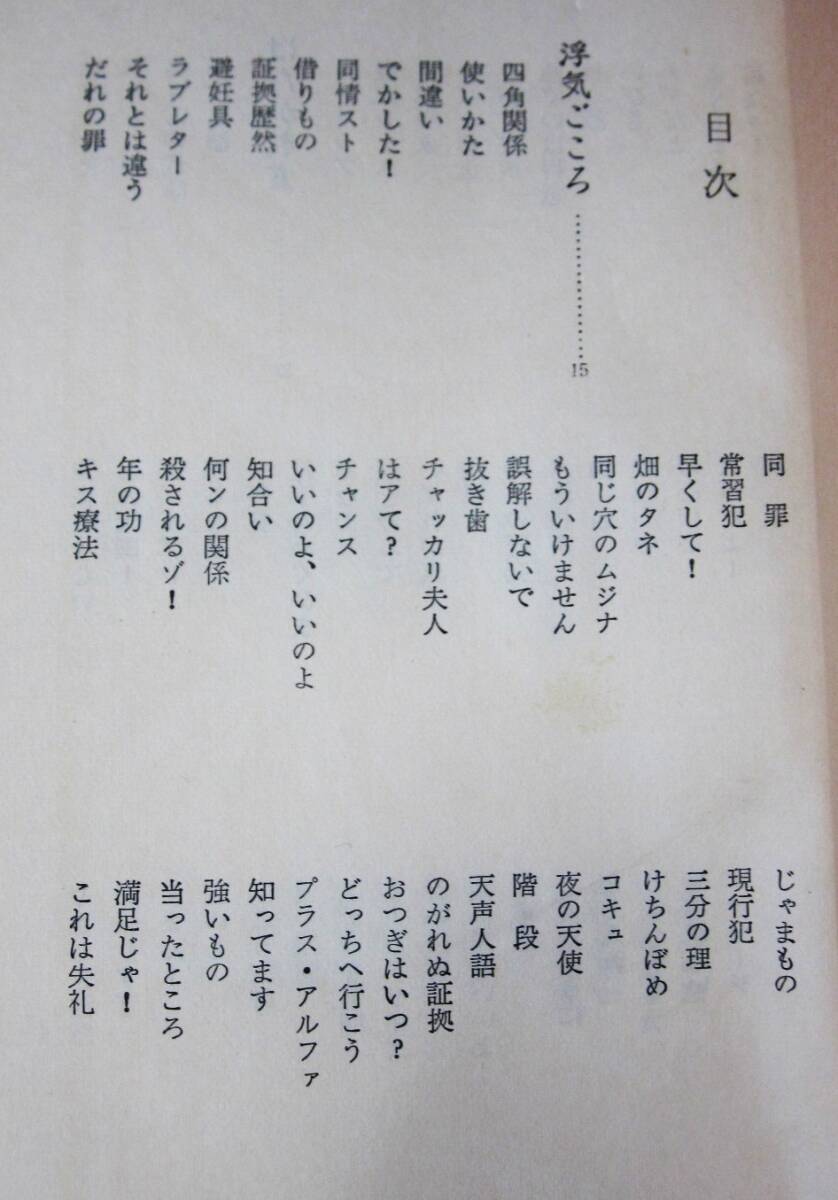 目次
浮気ごころ…………………15
四角関係
使いかた
間違い
でかした！
同情スト
借りもの
証拠歴然
避妊具
ラブレター
それとは違う
だれの罪
同罪
常習犯
早くして！
畑のタネ
同じ穴のムジナ
もういけません
誤解しないで
抜き歯
チャッカリ夫人
はアて？
チャンス
いいのよ、いいのよ
知合い
何ンの関係
殺されるゾ！
年の功
キス療法
じゃまもの
現行犯
三分の理
けちんぼめ
コキュ
夜の天使
階段
天声人語
のがれぬ証拠
おつぎはいつ？
どっちへ行こう
プラス・アルファ
知ってます
強いもの
当ったところ
満足じゃ！
これは失礼